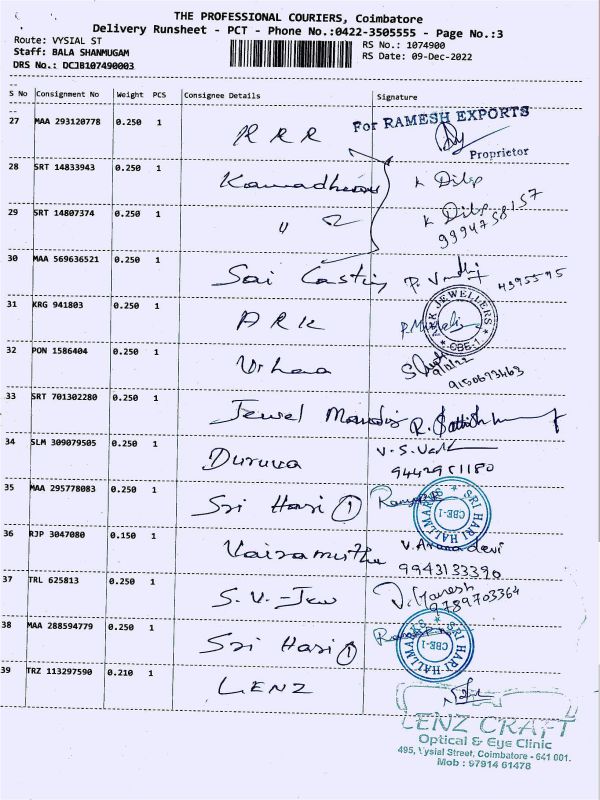 THE PROFESSIONAL COURIERS, Coimbatore
Delivery Runsheet - PCT - Phone No.:0422-3505555 - Page No.:3
Route: VYSIAL ST
RS No.: 1074900
Staff: BALA SHANMUGAM
RS Date: 09-Dec-2022
DRS No.: DCJB107490003
S No Consignment No Weight PCS Consignee Details Signature
27 MAA 293120778 0.250 1 RRR For RAMESH EXPORTS
Proprietor
28 SRT 14833943 0.250 1 K Dilip
29 SRT 14807374 0.250 1 " K Dilip
9994758157
30 MAA 569636521 0.250 1 Sai Casting 4395595
31 KRG 941803 0.250 1 ARK ARK JEWELLERS CBE-1
32 PON 1586404 0.250 1
9/12/22
9150693463
33 SRT 701302280 0.250 1 Jewel R. Sathish
34 SLM 309079505 0.250 1 Duruva V.S.
9442951180
35 MAA 295778083 0.250 1 Sri Hari 1 SRI HARI HALLMARKS CBE-1
36 RJP 3047080 0.150 1 Vairamuthu V. devi
9943133390
37 TRL 625813 0.250 1 S.V.-Jew V. Ganesh
9789703364
38 MAA 288594779 0.250 1 Sri Hari 1 SRI HARI HALLMARKS CBE-1
39 TRZ 113297590 0.210 1 LENZ
LENZ CRAFT
Optical & Eye Clinic
495, Vysial Street, Coimbatore - 641 001.
Mob : 97914 61478